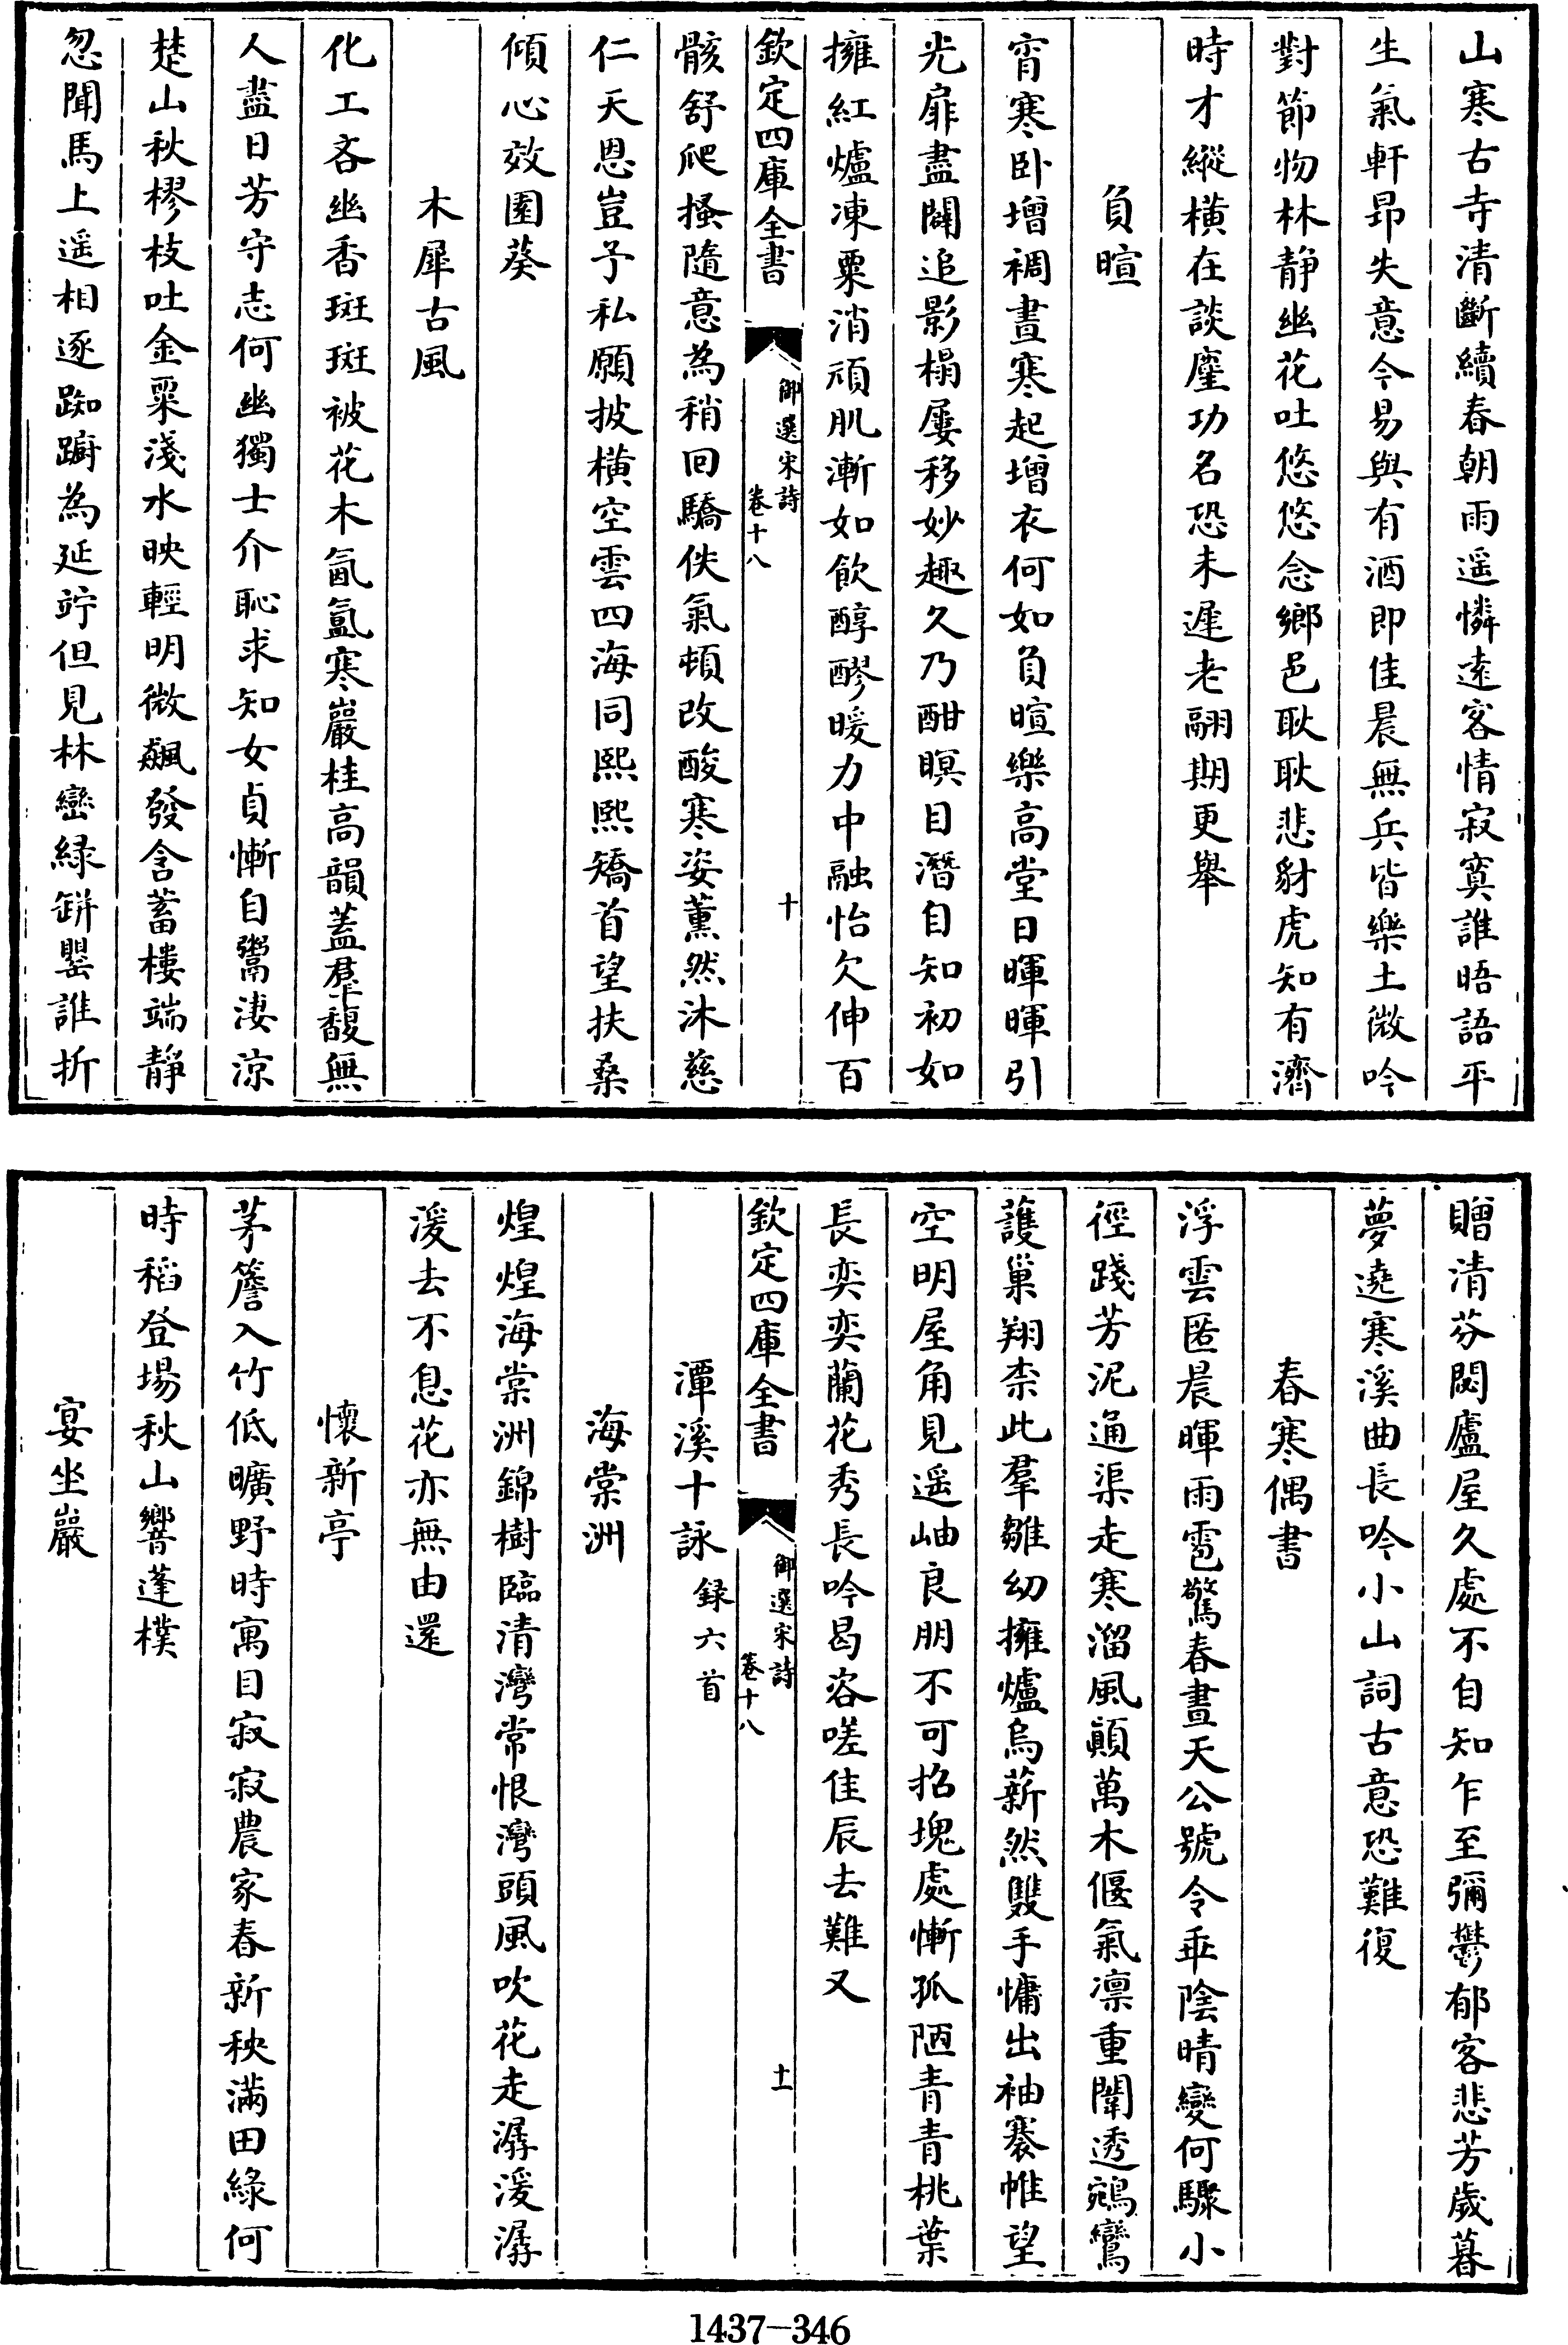 山寒古寺清斷續春朝雨遥憐逺客情寂寞誰晤語平
生氣軒昂失意今易與有酒即佳晨無兵皆樂土微吟
對節物林静幽花吐悠悠念鄉邑耿耿悲豺虎知有濟
時才縱横在談麈功名恐未遲老翮期更舉
負暄
宵寒卧增裯晝寒起增衣何如負暄樂高堂日暉暉引
光扉盡闢追影榻屢移妙趣久乃酣瞑目潛自知初如
擁紅爐凍粟消頑肌漸如飲醇醪暖力中融怡欠伸百
欽定四庫全書
御選宋詩
卷十八
十
骸舒爬搔隨意為稍回驕佚氣頓改酸寒姿薰然沐慈
仁天恩豈予私願披横空雲四海同熙熙矯首望扶桑
傾心效園葵
木犀古風
化工吝幽香斑斑被花木氤氲寒巖桂高韻蓋羣馥無
人盡日芳守志何幽獨士介恥求知女貞慚自鬻淒涼
楚山秋樛枝吐金粟淺水映輕明微飆發含蓄樓端靜
忽聞馬上遥相逐踟蹰為延竚但見林巒緑缾罌誰折
贈清芬閟廬屋久處不自知乍至彌鬱郁客悲芳歲暮
夢遶寒溪曲長吟小山詞古意恐難復
春寒偶書
浮雲匿晨暉雨雹驚春晝天公號令乖陰晴變何驟小
徑踐芳泥通渠走寒溜風顛萬木偃氣凛重闈透鵷鸞
護巢翔柰此羣雛幼擁爐烏薪然雙手慵出袖褰帷望
空明屋角見遥岫良朋不可招塊處慚孤陋青青桃葉
長奕奕蘭花秀長吟曷咨嗟佳辰去難又
欽定四庫全書
御選宋詩
卷十八
十一
潭溪十詠錄六首
海棠洲
煌煌海棠洲錦樹臨清灣常恨灣頭風吹花走潺湲潺
湲去不息花亦無由還
懷新亭
茅簷入竹低曠野時寓目寂寂農家春新秧滿田綠何
時稻登場秋山響蓬樸
宴坐巖
1437-346